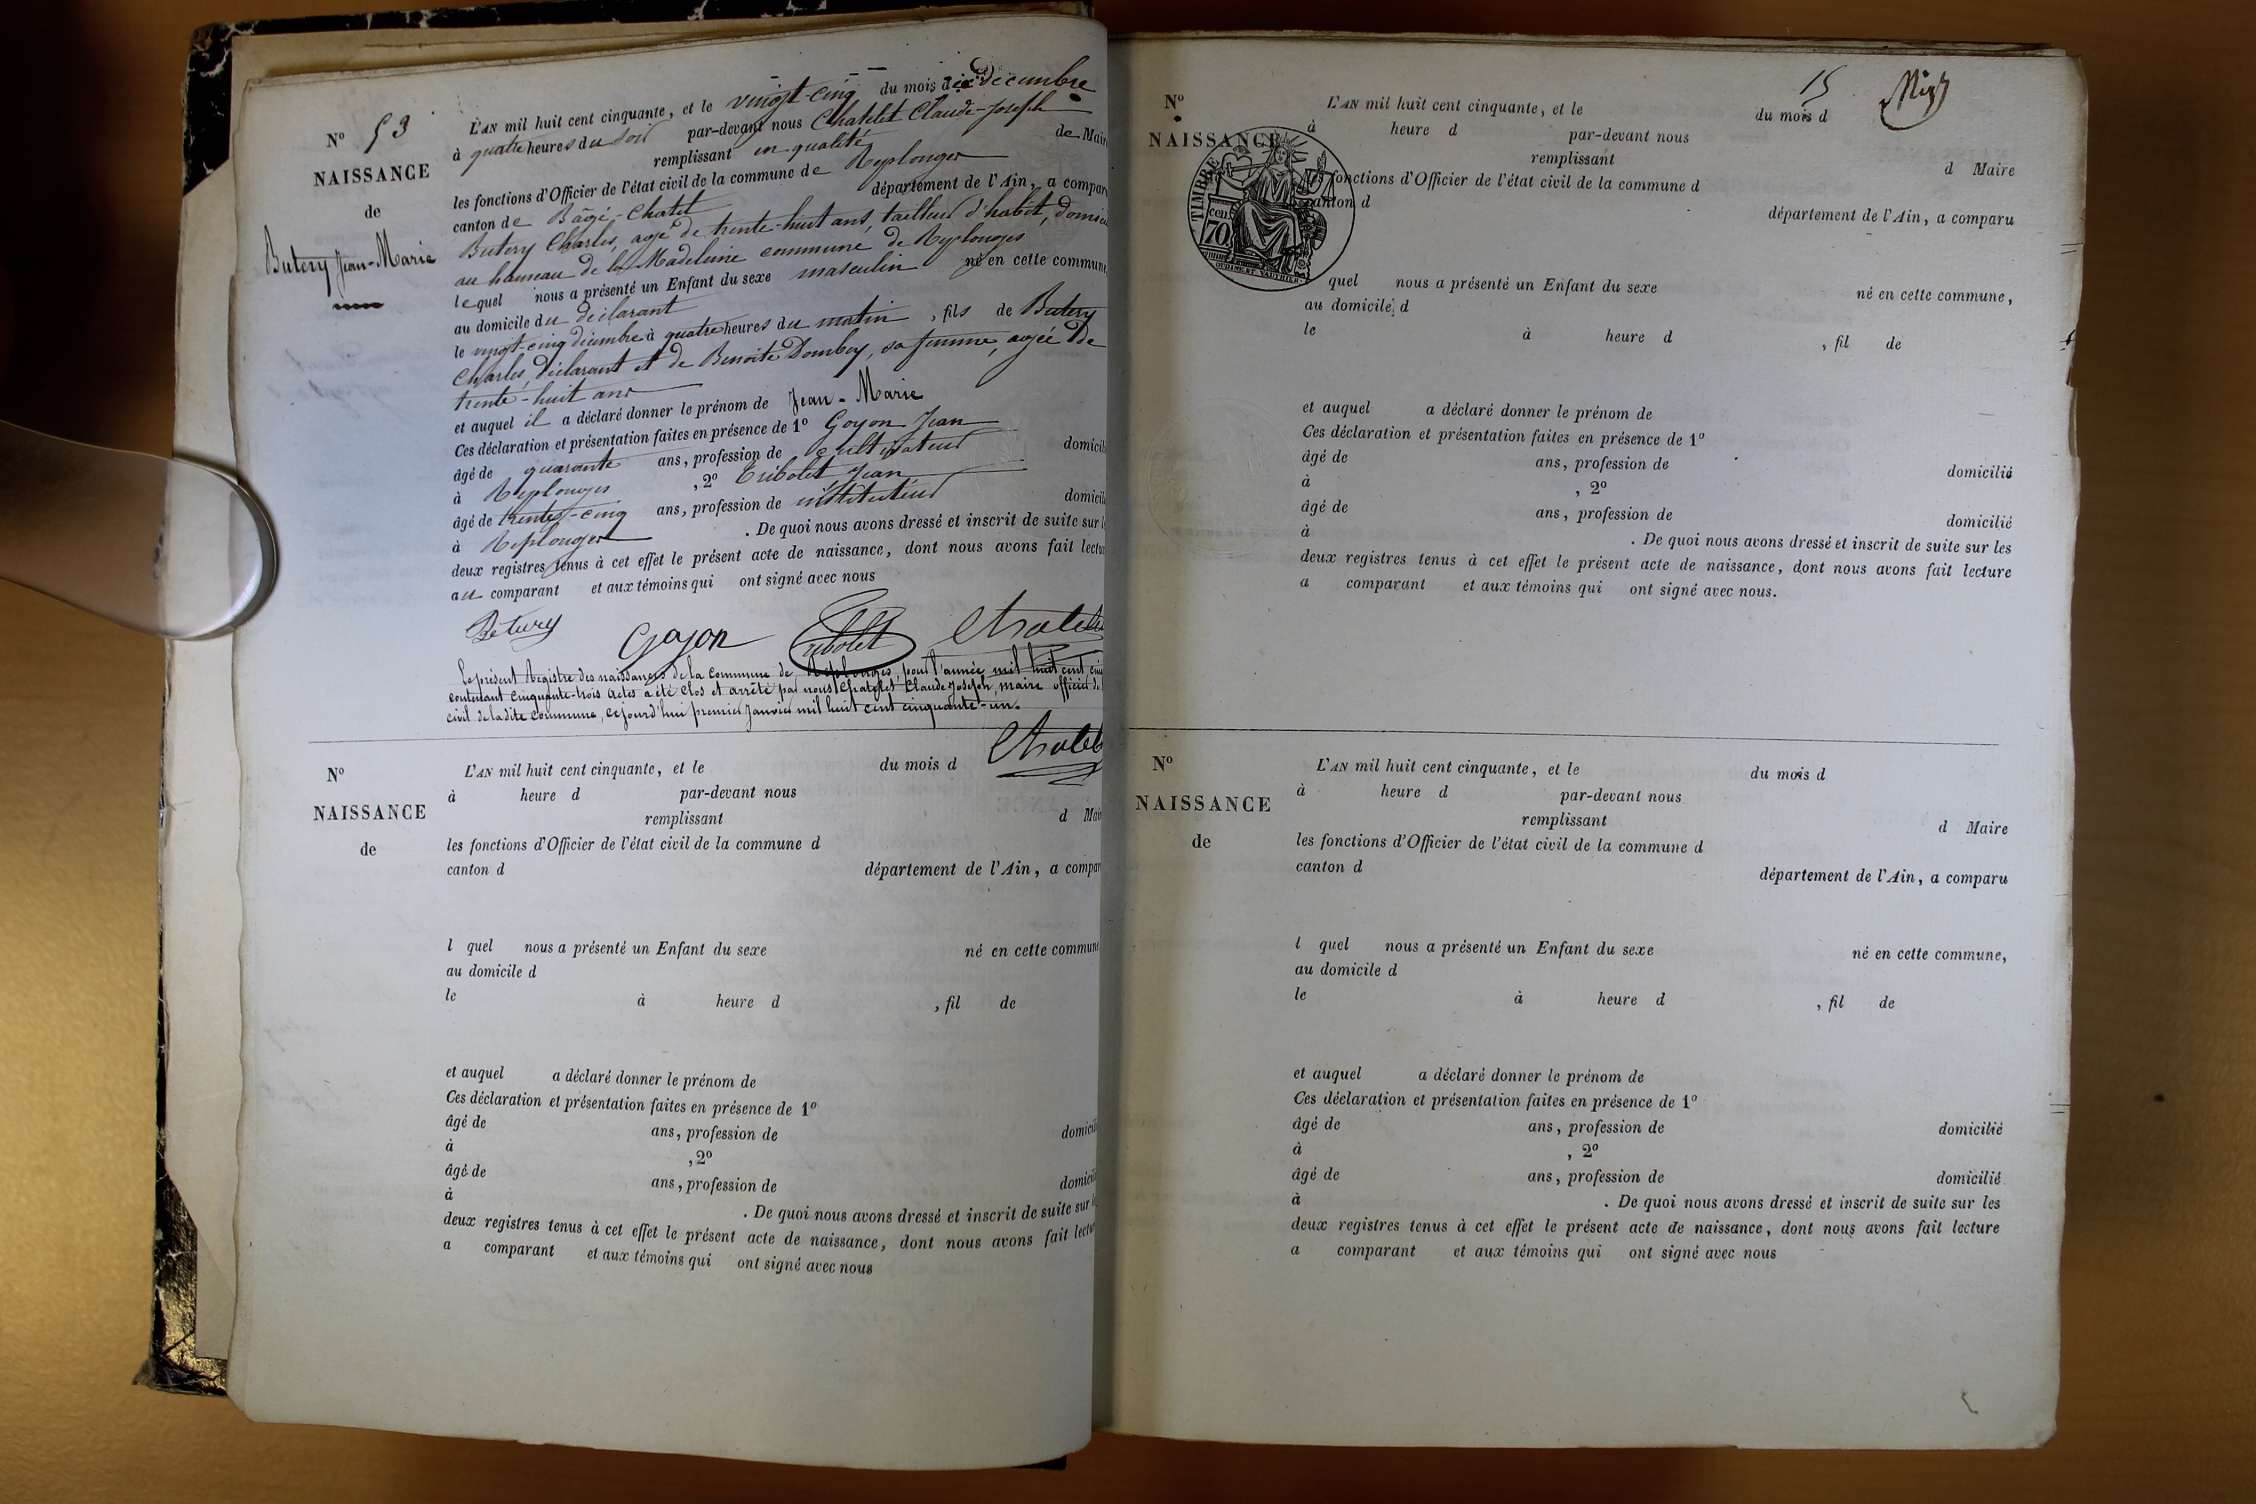 N° 53
NAISSANCE
de
Butery Jean-Marie
L'AN mil huit cent cinquante, et le vingt-cinq du mois de Décembre
à quatre heures du soir par-devant nous Chatelet Claude-Joseph
remplissant en qualité de Maire
les fonctions d'Officier de l'état civil de la commune de Replonges
canton de Bâgé-Chatel département de l'Ain, a compar
Butery Charles, agé de trente-huit ans, tailleur d'habit, domici
au hameau de la Madeleine commune de Replonges
lequel nous a présenté un Enfant du sexe masculin né en cette commune
au domicile du déclarant
le vingt-cinq décembre à quatre heures du matin, fils de Butery
Charles, déclarant et de Benoite Dombey, sa femme, agée de
trente-huit ans
et auquel il a déclaré donner le prénom de Jean-Marie
Ces déclaration et présentation faites en présence de 1° Goyon Jean
âgé de quarante ans, profession de cultivateur domicil
à Replonges, 2° Tribolet Jean
âgé de trente-cinq ans, profession de instituteur domicil
à Replonges. De quoi nous avons dressé et inscrit de suite sur l
deux registres tenus à cet effet le présent acte de naissance, dont nous avons fait lectu
au comparant et aux témoins qui ont signé avec nous
Betury Goyon Tribolet Chatelet
Le présent Registre des naissances de la Commune de Replonges, pour l'année mil huit cent cin
contenant cinquante-trois actes a été clos et arrêté par nous Chatelet Claude Joseph, maire officier de
civil de ladite commune, cejourd'hui premier Janvier mil huit cent cinquante-un.
Chatel
N°
NAISSANCE
de
L'AN mil huit cent cinquante, et le du mois d
à heure d par-devant nous
remplissant d Mai
les fonctions d'Officier de l'état civil de la commune d
canton d département de l'Ain, a compar
l quel nous a présenté un Enfant du sexe né en cette commune
au domicile d
le à heure d , fil de
et auquel a déclaré donner le prénom de
Ces déclaration et présentation faites en présence de 1°
âgé de ans, profession de domicil
à , 2°
âgé de ans, profession de domicil
à . De quoi nous avons dressé et inscrit de suite sur l
deux registres tenus à cet effet le présent acte de naissance, dont nous avons fait lectu
a comparant et aux témoins qui ont signé avec nous
15
N°
NAISSANCE
TIMBRE
CEN.
70
OUDINE ET VAUTHIER
L'AN mil huit cent cinquante, et le du mois d
à heure d par-devant nous
remplissant d Maire
les fonctions d'Officier de l'état civil de la commune d
canton d département de l'Ain, a comparu
quel nous a présenté un Enfant du sexe né en cette commune,
au domicile d
le à heure d , fil de
et auquel a déclaré donner le prénom de
Ces déclaration et présentation faites en présence de 1°
âgé de ans, profession de domicilié
à , 2°
âgé de ans, profession de domicilié
à . De quoi nous avons dressé et inscrit de suite sur les
deux registres tenus à cet effet le présent acte de naissance, dont nous avons fait lecture
a comparant et aux témoins qui ont signé avec nous.
N°
NAISSANCE
de
L'AN mil huit cent cinquante, et le du mois d
à heure d par-devant nous
remplissant d Maire
les fonctions d'Officier de l'état civil de la commune d
canton d département de l'Ain, a comparu
l quel nous a présenté un Enfant du sexe né en cette commune,
au domicile d
le à heure d , fil de
et auquel a déclaré donner le prénom de
Ces déclaration et présentation faites en présence de 1°
âgé de ans, profession de domicilié
à , 2°
âgé de ans, profession de domicilié
à . De quoi nous avons dressé et inscrit de suite sur les
deux registres tenus à cet effet le présent acte de naissance, dont nous avons fait lecture
a comparant et aux témoins qui ont signé avec nous